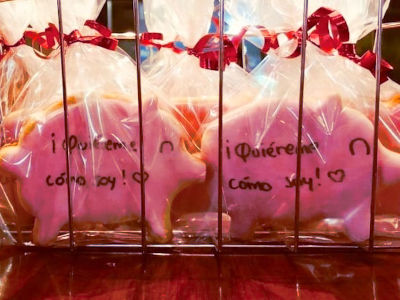 ¡Quiéreme
cómo soy! ♡
¡Quiéreme
cómo soy! ♡